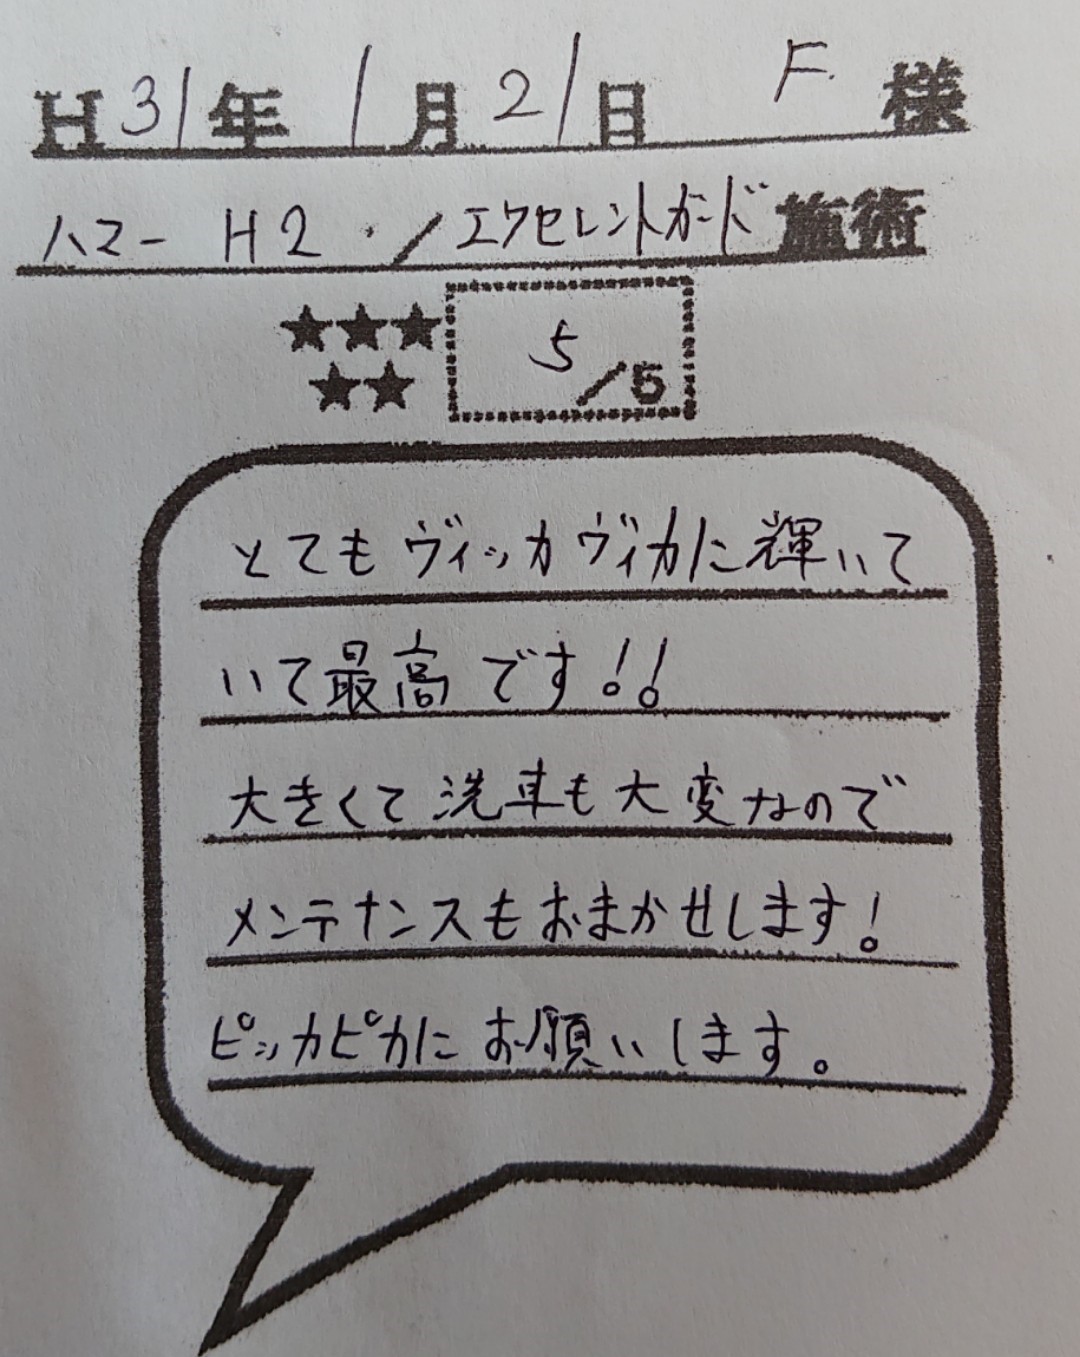 H31年1月21日 F.様
ハマー H2./エクセレントガード施術
★★★
★★
5/5
とてもヴィッカヴィカに輝いて
いて最高です!!
大きくて洗車も大変なので
メンテナンスもおまかせします!
ピッカピカにお願いします。